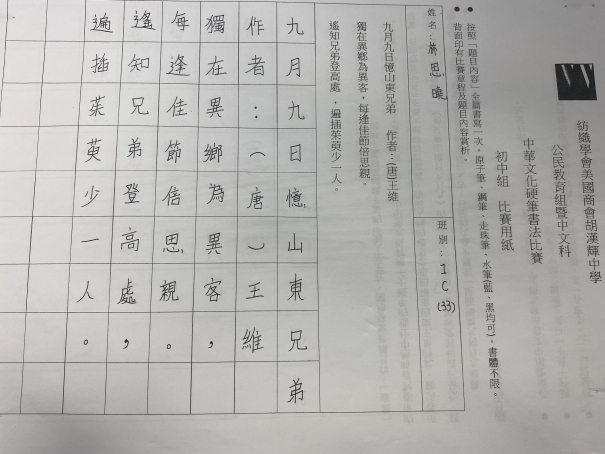 紡織學會美國商會胡漢輝中學
公民教育組暨中文科
中華文化硬筆書法比賽
初中組　比賽用紙
● 按照「題目內容」全篇書寫一次，原子筆、鋼筆、走珠筆、水筆(藍、黑均可)，書體不限。
● 背面印有比賽章程及題目內容賞析。
姓名：思曉 班別：1C (33)
九月九日憶山東兄弟　作者：(唐)王維
獨在異鄉為異客，每逢佳節倍思親。
遙知兄弟登高處，遍插茱萸少一人。
九月九日憶山東兄弟
作者：（唐）王維
獨在異鄉為異客，
每逢佳節倍思親。
遙知兄弟登高處，
遍插茱萸少一人。